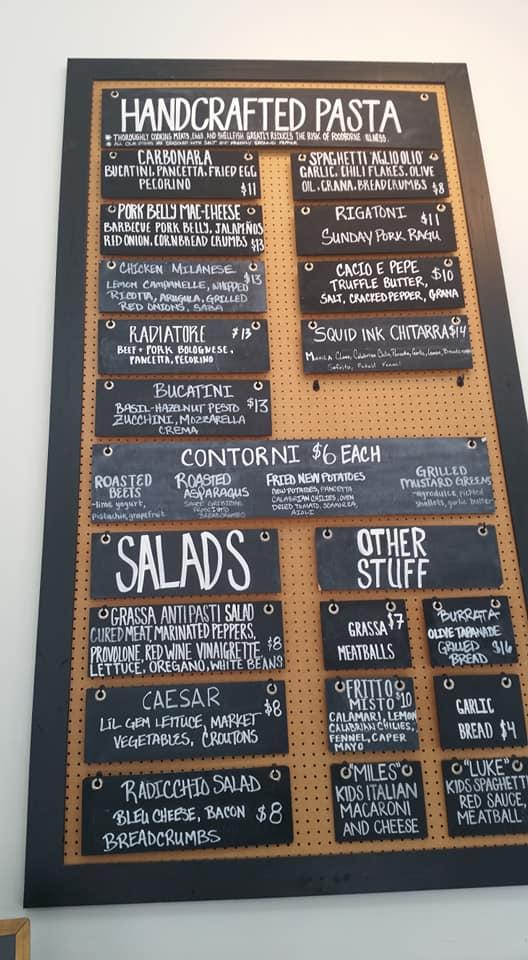 HANDCRAFTED PASTA
* THOROUGHLY COOKING MEATS, EGGS, AND SHELLFISH GREATLY REDUCES THE RISK OF FOODBORNE ILLNESS.
* ALL OUR ITEMS ARE SEASONED WITH SALT AND FRESHLY GROUND PEPPER
CARBONARA
BUCATINI, PANCETTA, FRIED EGG
PECORINO
$11
SPAGHETTI AGLIO OLIO
GARLIC, CHILI FLAKES, OLIVE
OIL, GRANA, BREADCRUMBS $8
PORK BELLY MAC+CHEESE
BARBECUE PORK BELLY, JALAPEÑOS
RED ONION, CORNBREAD CRUMBS $13
RIGATONI $11
SUNDAY PORK RAGU
CHICKEN MILANESE $13
LEMON CAMPANELLE, WHIPPED
RICOTTA, ARUGULA, GRILLED
RED ONIONS, SABA
CACIO E PEPE $10
TRUFFLE BUTTER,
SALT, CRACKED PEPPER, GRANA
RADIATORE $13
BEEF + PORK BOLOGNESE,
PANCETTA, PECORINO
SQUID INK CHITARRA $14
Manila Clams, Calabrian Chile, Garlic, Lemon, Breadcrumbs
Fennel
BUCATINI $13
BASIL-HAZELNUT PESTO
ZUCCHINI, MOZZARELLA
CREMA
CONTORNI $6 EACH
ROASTED
BEETS
-lime yogurt,
pistachio, grapefruit
ROASTED
ASPARAGUS
SAUCE
PROSCIUTTO
BREADCRUMBS
FRIED NEW POTATOES
NEW POTATOES, PANCETTA
CALABRIAN CHILIES, OVEN
DRIED TOMATO, SCAMORZA,
AIOLI
GRILLED
MUSTARD GREENS
-agrodulce, pickled
shallots, garlic butter
SALADS
GRASSA ANTIPASTI SALAD
CURED MEAT, MARINATED PEPPERS,
PROVOLONE, RED WINE VINAIGRETTE, $8
LETTUCE, OREGANO, WHITE BEANS
CAESAR $8
LIL GEM LETTUCE, MARKET
VEGETABLES, CROUTONS
RADICCHIO SALAD
BLEU CHEESE, BACON $8
BREADCRUMBS
OTHER
STUFF
GRASSA $7
MEATBALLS
BURRATA
OLIVE TAPANADE
GRILLED $16
BREAD
FRITTO
MISTO $10
CALAMARI, LEMON
CALABRIAN CHILIES,
FENNEL, CAPER
MAYO
GARLIC
BREAD $4
"MILES"
KIDS ITALIAN
MACARONI
AND CHEESE
"LUKE"
KIDS SPAGHETTI
RED SAUCE
MEATBALL